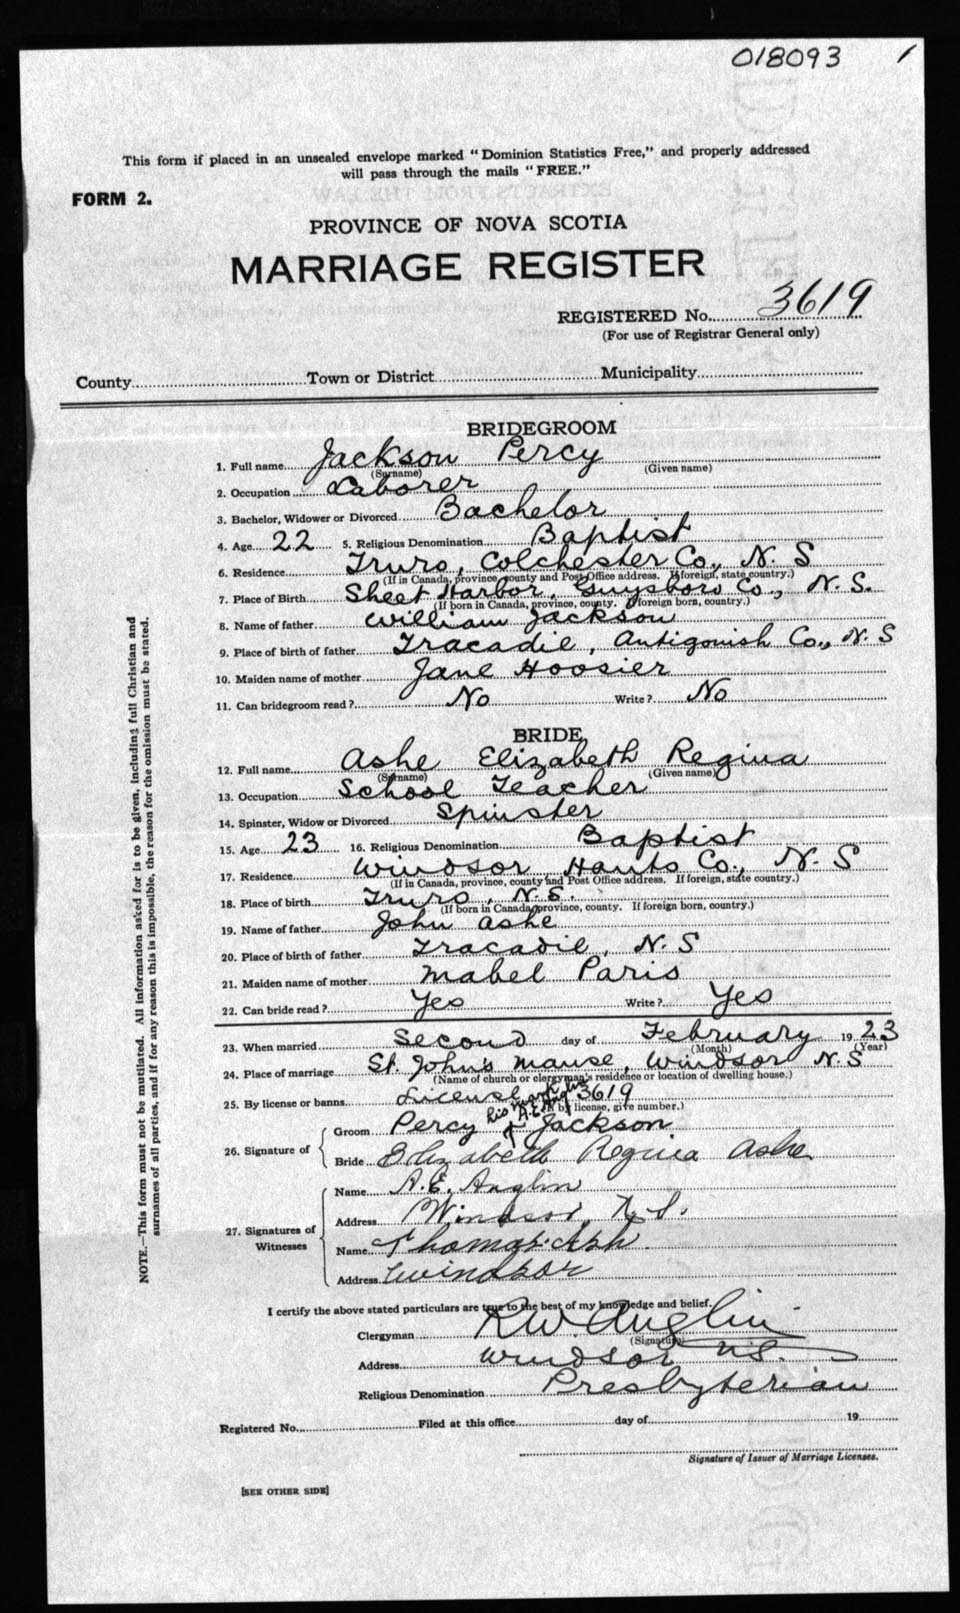 018093 1
This form if placed in an unsealed envelope marked "Dominion Statistics Free," and properly addressed
will pass through the mails "FREE."
FORM 2.
PROVINCE OF NOVA SCOTIA
MARRIAGE REGISTER
REGISTERED No. 3619
(For use of Registrar General only)
County Town or District Municipality
BRIDEGROOM
1. Full name Jackson Percy
(Surname) (Given name)
2. Occupation Laborer
3. Bachelor, Widower or Divorced Bachelor
4. Age 22 5. Religious Denomination Baptist
6. Residence Truro, Colchester Co., N. S
(If in Canada, province, county and Post Office address. If foreign, state country.)
7. Place of Birth Sheet Harbor, Guysboro Co., N. S.
(If born in Canada, province, county. If foreign born, country.)
8. Name of father William Jackson
9. Place of birth of father Tracadie, Antigonish Co., N. S
10. Maiden name of mother Jane Hoosier
11. Can bridegroom read? No Write? No
BRIDE
12. Full name Ashe Elizabeth Regina
(Surname) (Given name)
13. Occupation School Teacher
14. Spinster, Widow or Divorced Spinster
15. Age 23 16. Religious Denomination Baptist
17. Residence Windsor Hants Co., N. S
(If in Canada, province, county and Post Office address. If foreign, state country.)
18. Place of birth Truro, N. S.
(If born in Canada, province, county. If foreign born, country.)
19. Name of father John Ashe
20. Place of birth of father Tracadie, N. S
21. Maiden name of mother Mabel Paris
22. Can bride read? Yes Write? Yes
23. When married Second day of February 1923
(Month) (Year)
24. Place of marriage St. John's Manse, Windsor N. S
(Name of church or clergyman's residence or location of dwelling house.)
25. By license or banns License 3619
(If by license, give number.)
his mark
A.E. Ang
26. Signature of Groom Percy X Jackson
Bride Elizabeth Regina Ashe
27. Signatures of Witnesses
Name A. E. Anglin
Address Windsor, N. S.
Name Thomas Ash
Address Windsor
I certify the above stated particulars are true to the best of my knowledge and belief.
Clergyman R W. Anglin
(Signature)
Address Windsor N.S.
Religious Denomination Presbyterian
Registered No. Filed at this office day of 19
Signature of Issuer of Marriage Licenses.
[SEE OTHER SIDE]
NOTE.—This form must not be mutilated. All information asked for is to be given, including full Christian and
surnames of all parties, and if for any reason this is impossible, the reason for the omission must be stated.